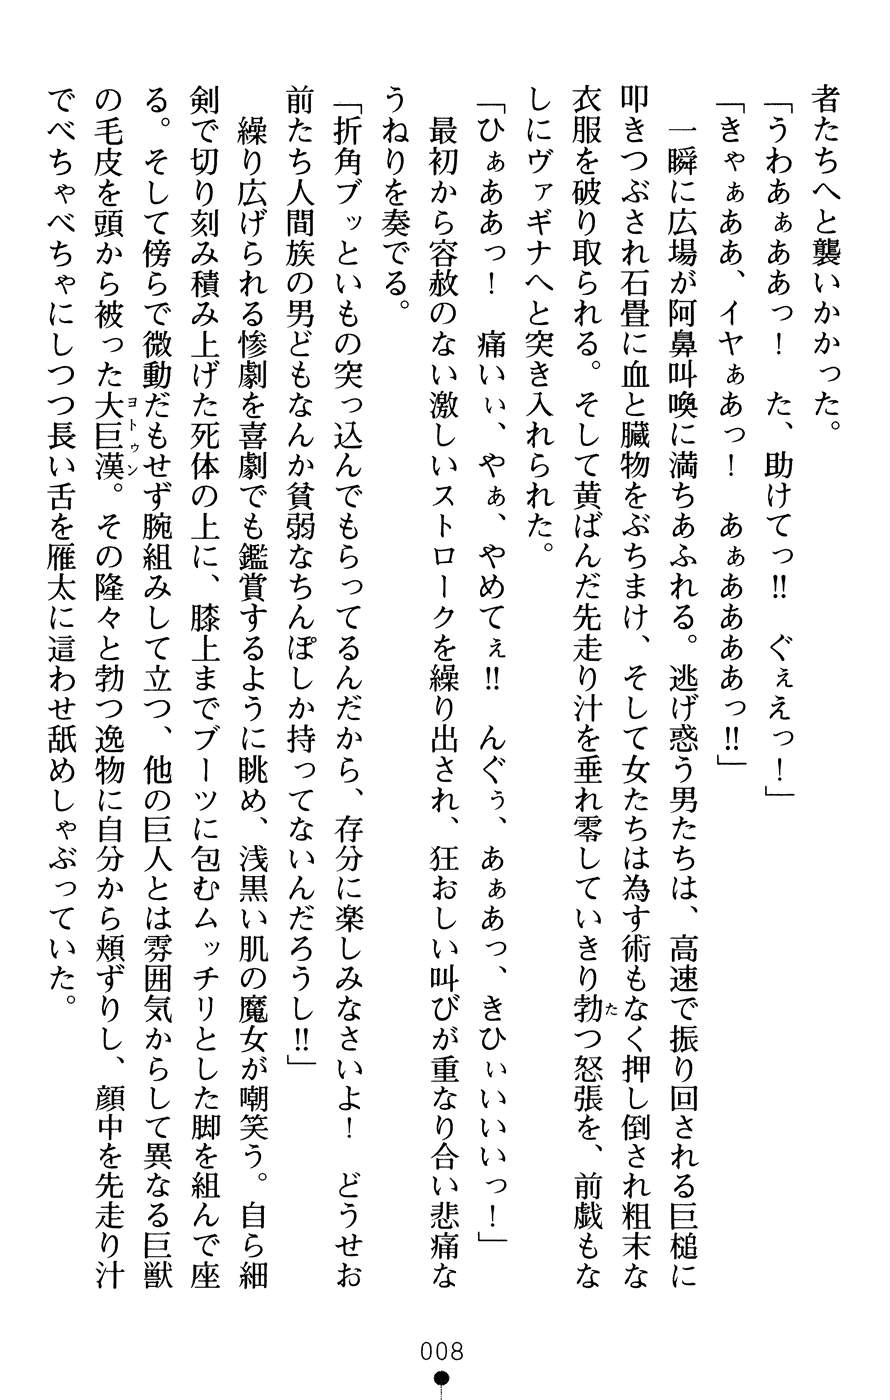 者たちへと襲いかかった。
「うわあぁああっ！　た、助けてっ‼　ぐぇえっ！」
「きゃぁああ、イヤぁあっ！　あぁああああっ‼」
　一瞬に広場が阿鼻叫喚に満ちあふれる。逃げ惑う男たちは、高速で振り回される巨槌に
叩きつぶされ石畳に血と臓物をぶちまけ、そして女たちは為す術もなく押し倒され粗末な
衣服を破り取られる。そして黄ばんだ先走り汁を垂れ零していきり勃つ怒張を、前戯もな
しにヴァギナへと突き入れられた。
「ひぁああっ！　痛いぃ、やぁ、やめてぇ‼　んぐぅ、あぁあっ、きひぃいいいっ！」
　最初から容赦のない激しいストロークを繰り出され、狂おしい叫びが重なり合い悲痛な
うねりを奏でる。
「折角ブッといもの突っ込んでもらってるんだから、存分に楽しみなさいよ！　どうせお
前たち人間族の男どもなんか貧弱なちんぽしか持ってないんだろうし‼」
　繰り広げられる惨劇を喜劇でも鑑賞するように眺め、浅黒い肌の魔女が嘲笑う。自ら細
剣で切り刻み積み上げた死体の上に、膝上までブーツに包むムッチリとした脚を組んで座
る。そして傍らで微動だもせず腕組みして立つ、他の巨人とは雰囲気からして異なる巨獣
の毛皮を頭から被った大巨漢。その隆々と勃つ逸物に自分から頬ずりし、顔中を先走り汁
でべちゃべちゃにしつつ長い舌を雁太に這わせ舐めしゃぶっていた。
た
ヨトゥン
008